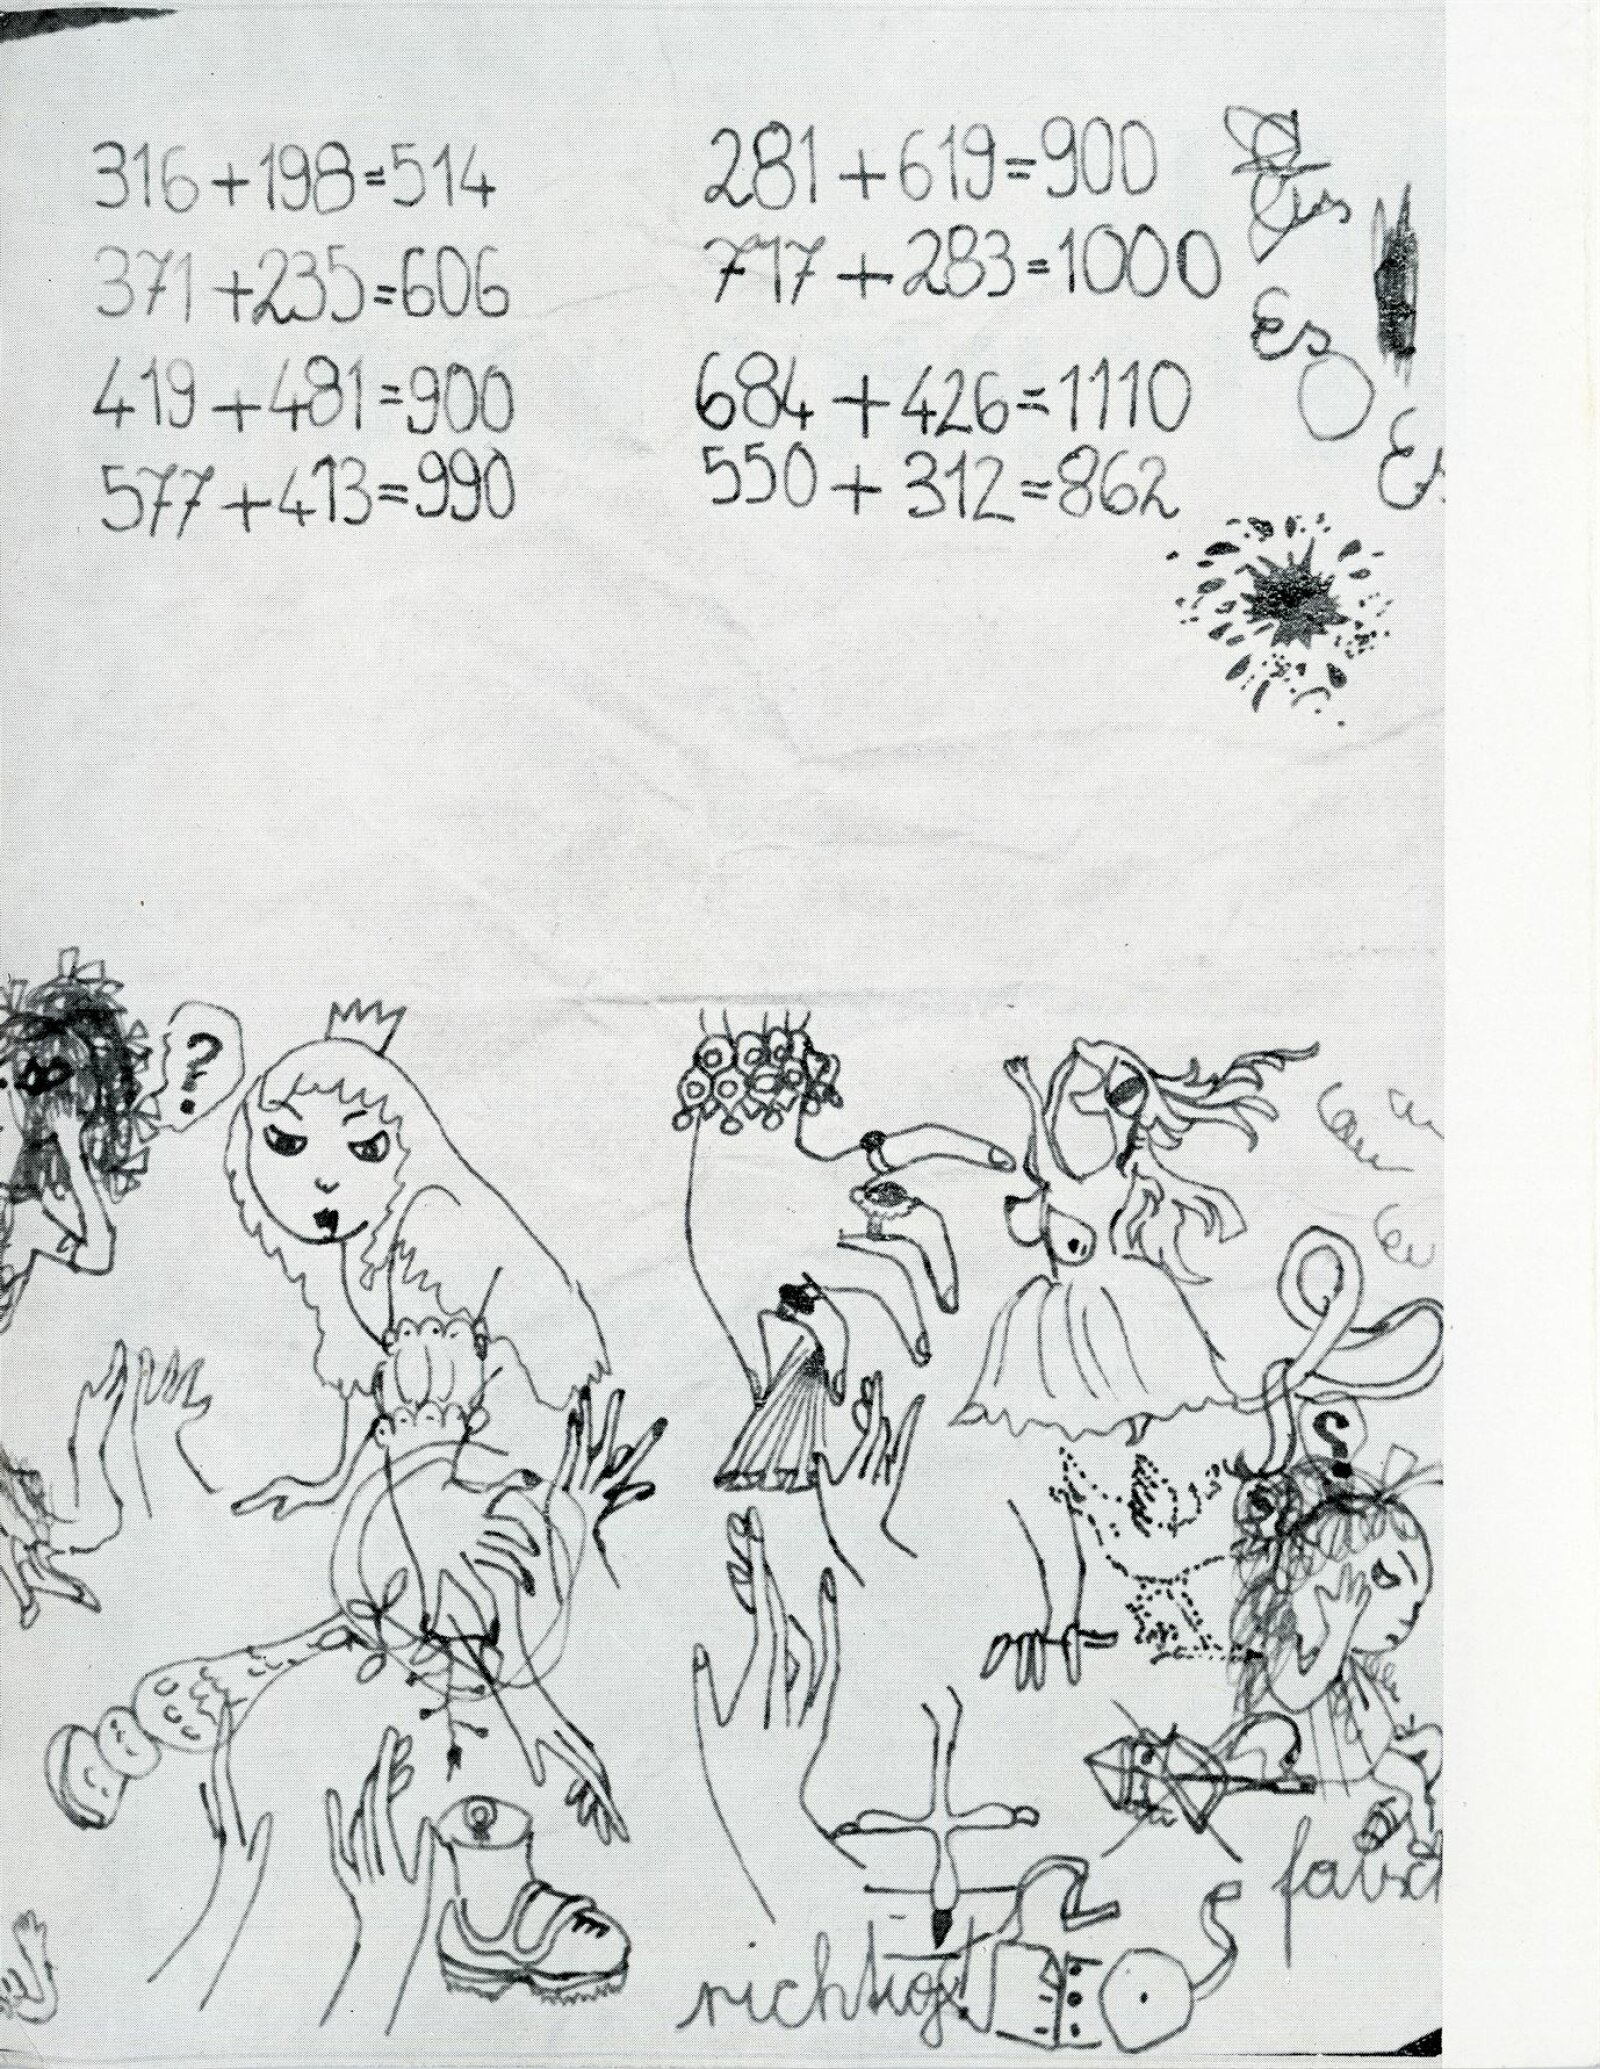 316+198=514
371+235=606
419+481=900
577+413=990
281+619=900
717+283=1000
684+426=1110
550+312=862
Es
Es
?
?
richtig